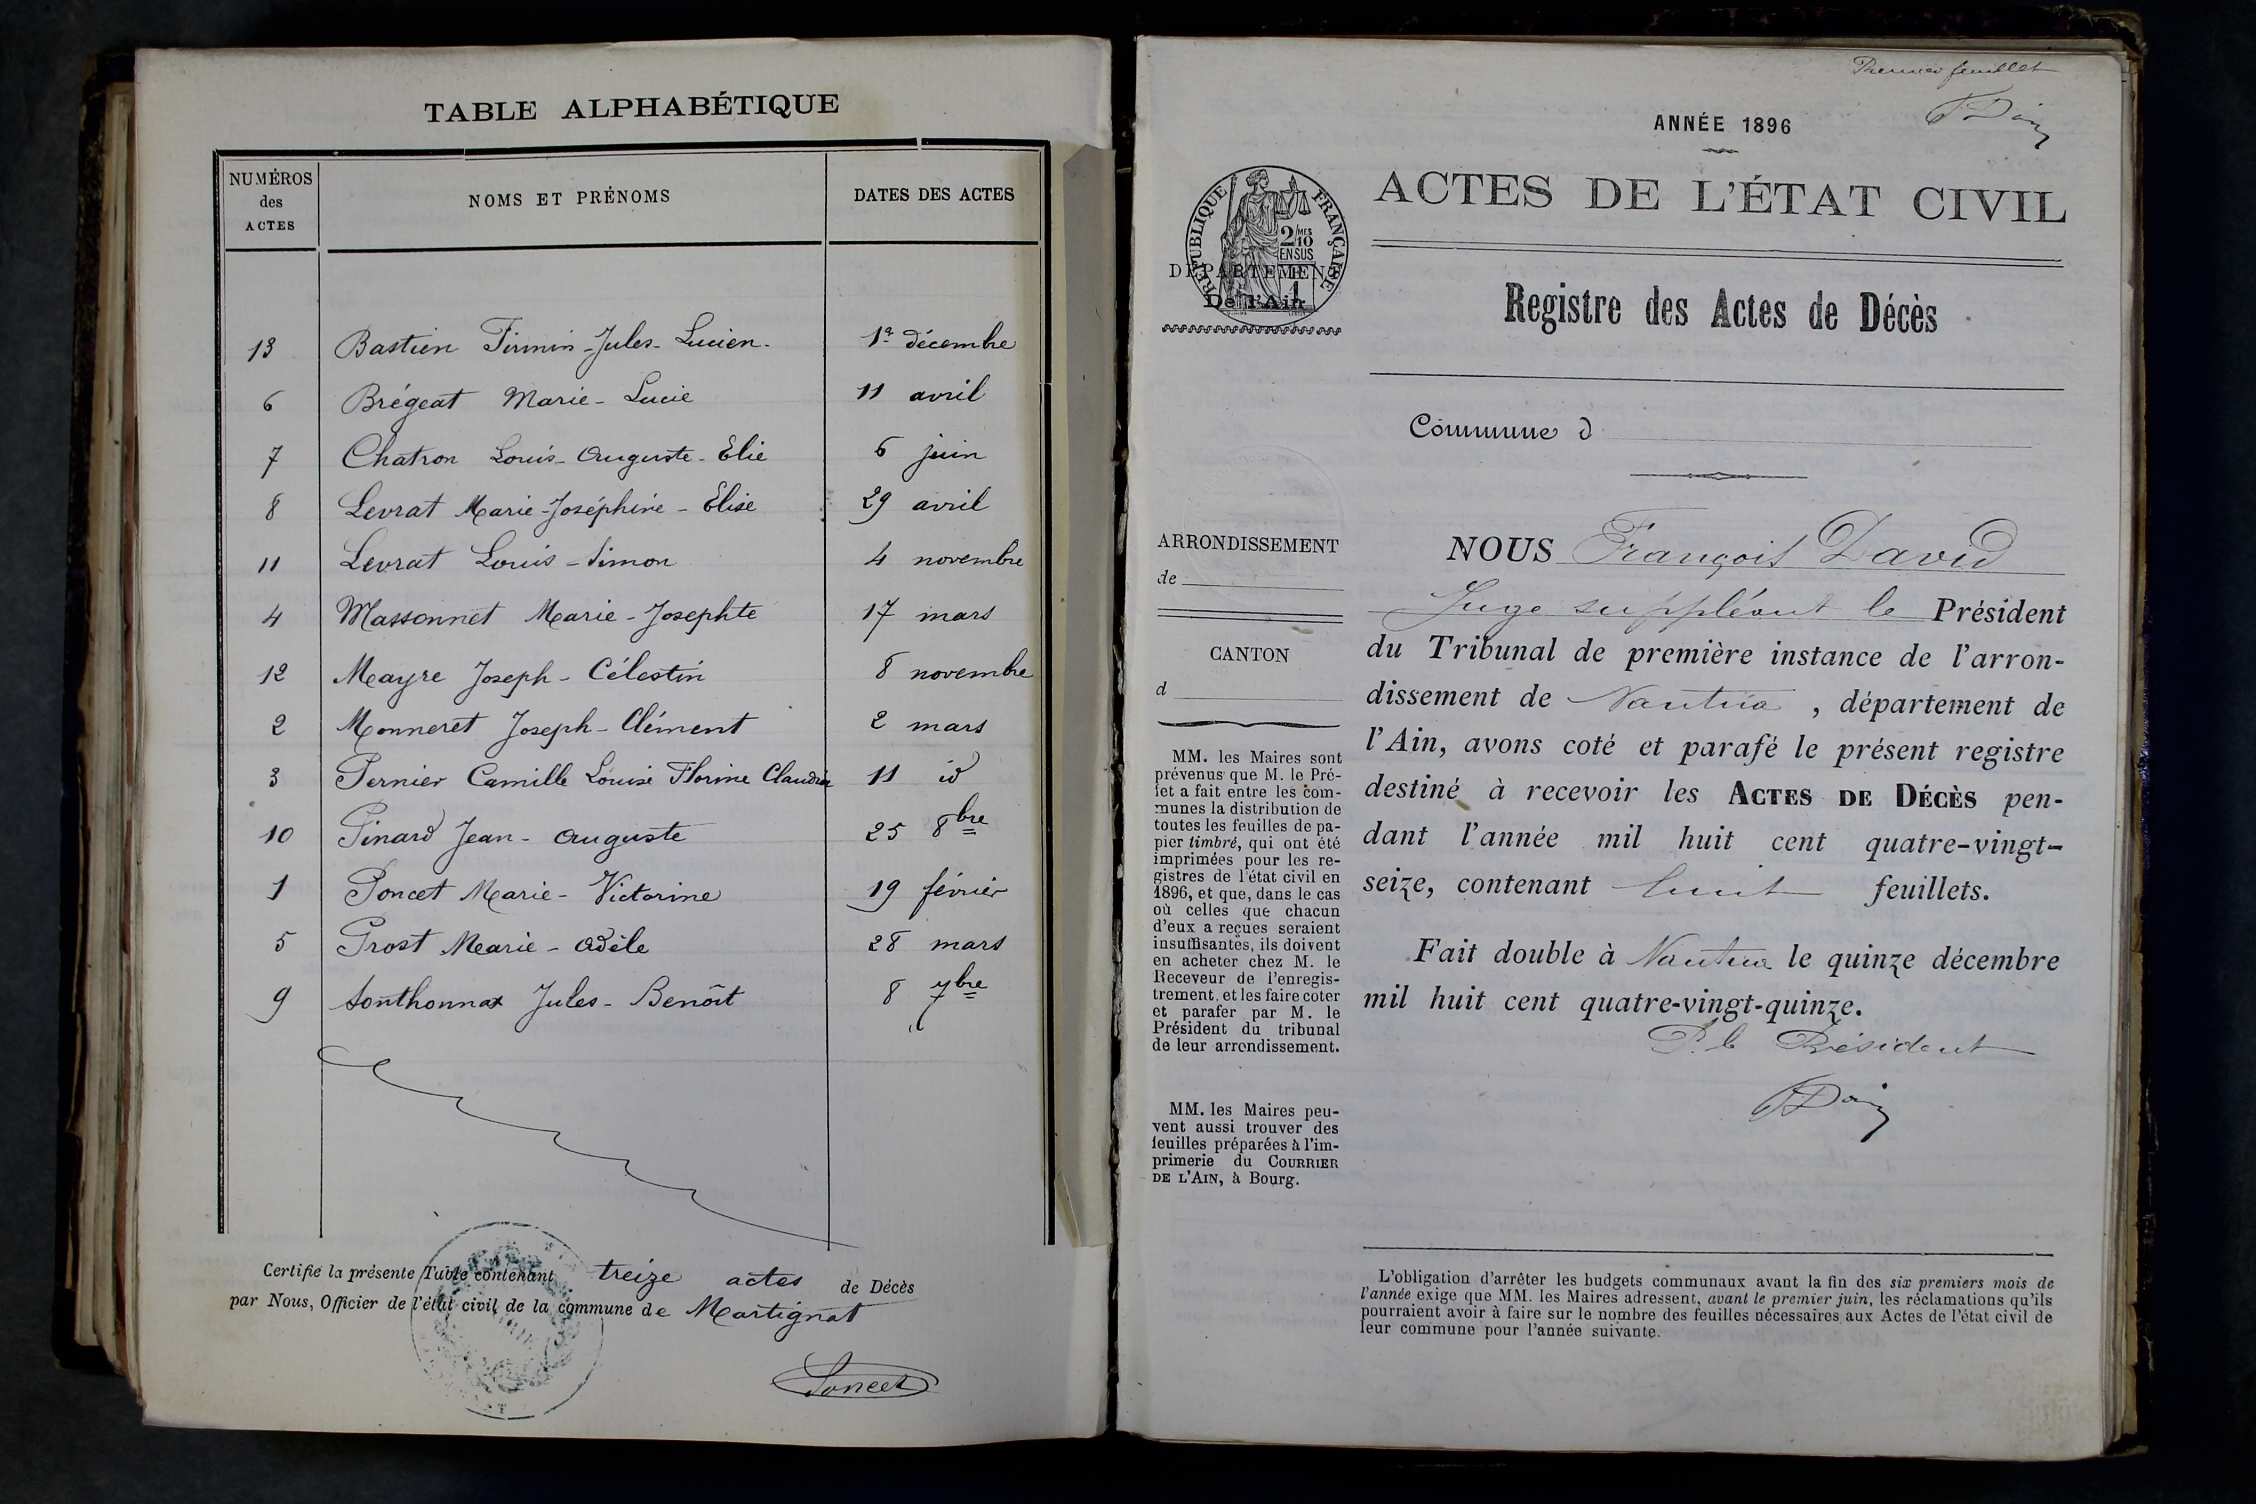 TABLE ALPHABÉTIQUE
NUMÉROS des ACTES NOMS ET PRÉNOMS DATES DES ACTES
13 Bastien Firmin-Jules-Lucien 1er décembre
6 Brégeat Marie-Lucie 11 avril
7 Chatron Louis-Auguste-Elie 6 juin
8 Levrat Marie-Joséphine-Elise 29 avril
11 Levrat Louis-Simon 4 novembre
4 Massonnet Marie-Josephte 17 mars
12 Mayre Joseph-Célestin 8 novembre
2 Monneret Joseph-Clément 2 mars
3 Pernier Camille Louise Florine Claudia 11 id
10 Pinard Jean-Auguste 25 8bre
1 Poncet Marie-Victorine 19 février
5 Prost Marie-Adèle 28 mars
9 Sonthonnax Jules-Benoît 8 7bre
Certifié la présente Table contenant treize actes de Décès
par Nous, Officier de l'état civil de la commune de Martignat
Poncet
Premier feuillet
ANNÉE 1896
RÉPUBLIQUE FRANÇAISE
2/10 MES
EN SUS
DÉPARTEMENT
De l'Ain
ACTES DE L'ÉTAT CIVIL
Registre des Actes de Décès
Commune d
ARRONDISSEMENT
de
CANTON
d
MM. les Maires sont
prévenus que M. le Pré-
fet a fait entre les com-
munes la distribution de
toutes les feuilles de pa-
pier timbré, qui ont été
imprimées pour les re-
gistres de l'état civil en
1896, et que, dans le cas
où celles que chacun
d'eux a reçues seraient
insuffisantes, ils doivent
en acheter chez M. le
Receveur de l'enregis-
trement, et les faire coter
et parafer par M. le
Président du tribunal
de leur arrondissement.
MM. les Maires peu-
vent aussi trouver des
feuilles préparées à l'im-
primerie du COURRIER
DE L'AIN, à Bourg.
NOUS François David
Juge suppléant le Président
du Tribunal de première instance de l'arron-
dissement de Nantua, département de
l'Ain, avons coté et parafé le présent registre
destiné à recevoir les ACTES DE DÉCÈS pen-
dant l'année mil huit cent quatre-vingt-
seize, contenant huit feuillets.
Fait double à Nantua le quinze décembre
mil huit cent quatre-vingt-quinze.
P. le Président
L'obligation d'arrêter les budgets communaux avant la fin des six premiers mois de
l'année exige que MM. les Maires adressent, avant le premier juin, les réclamations qu'ils
pourraient avoir à faire sur le nombre des feuilles nécessaires aux Actes de l'état civil de
leur commune pour l'année suivante.